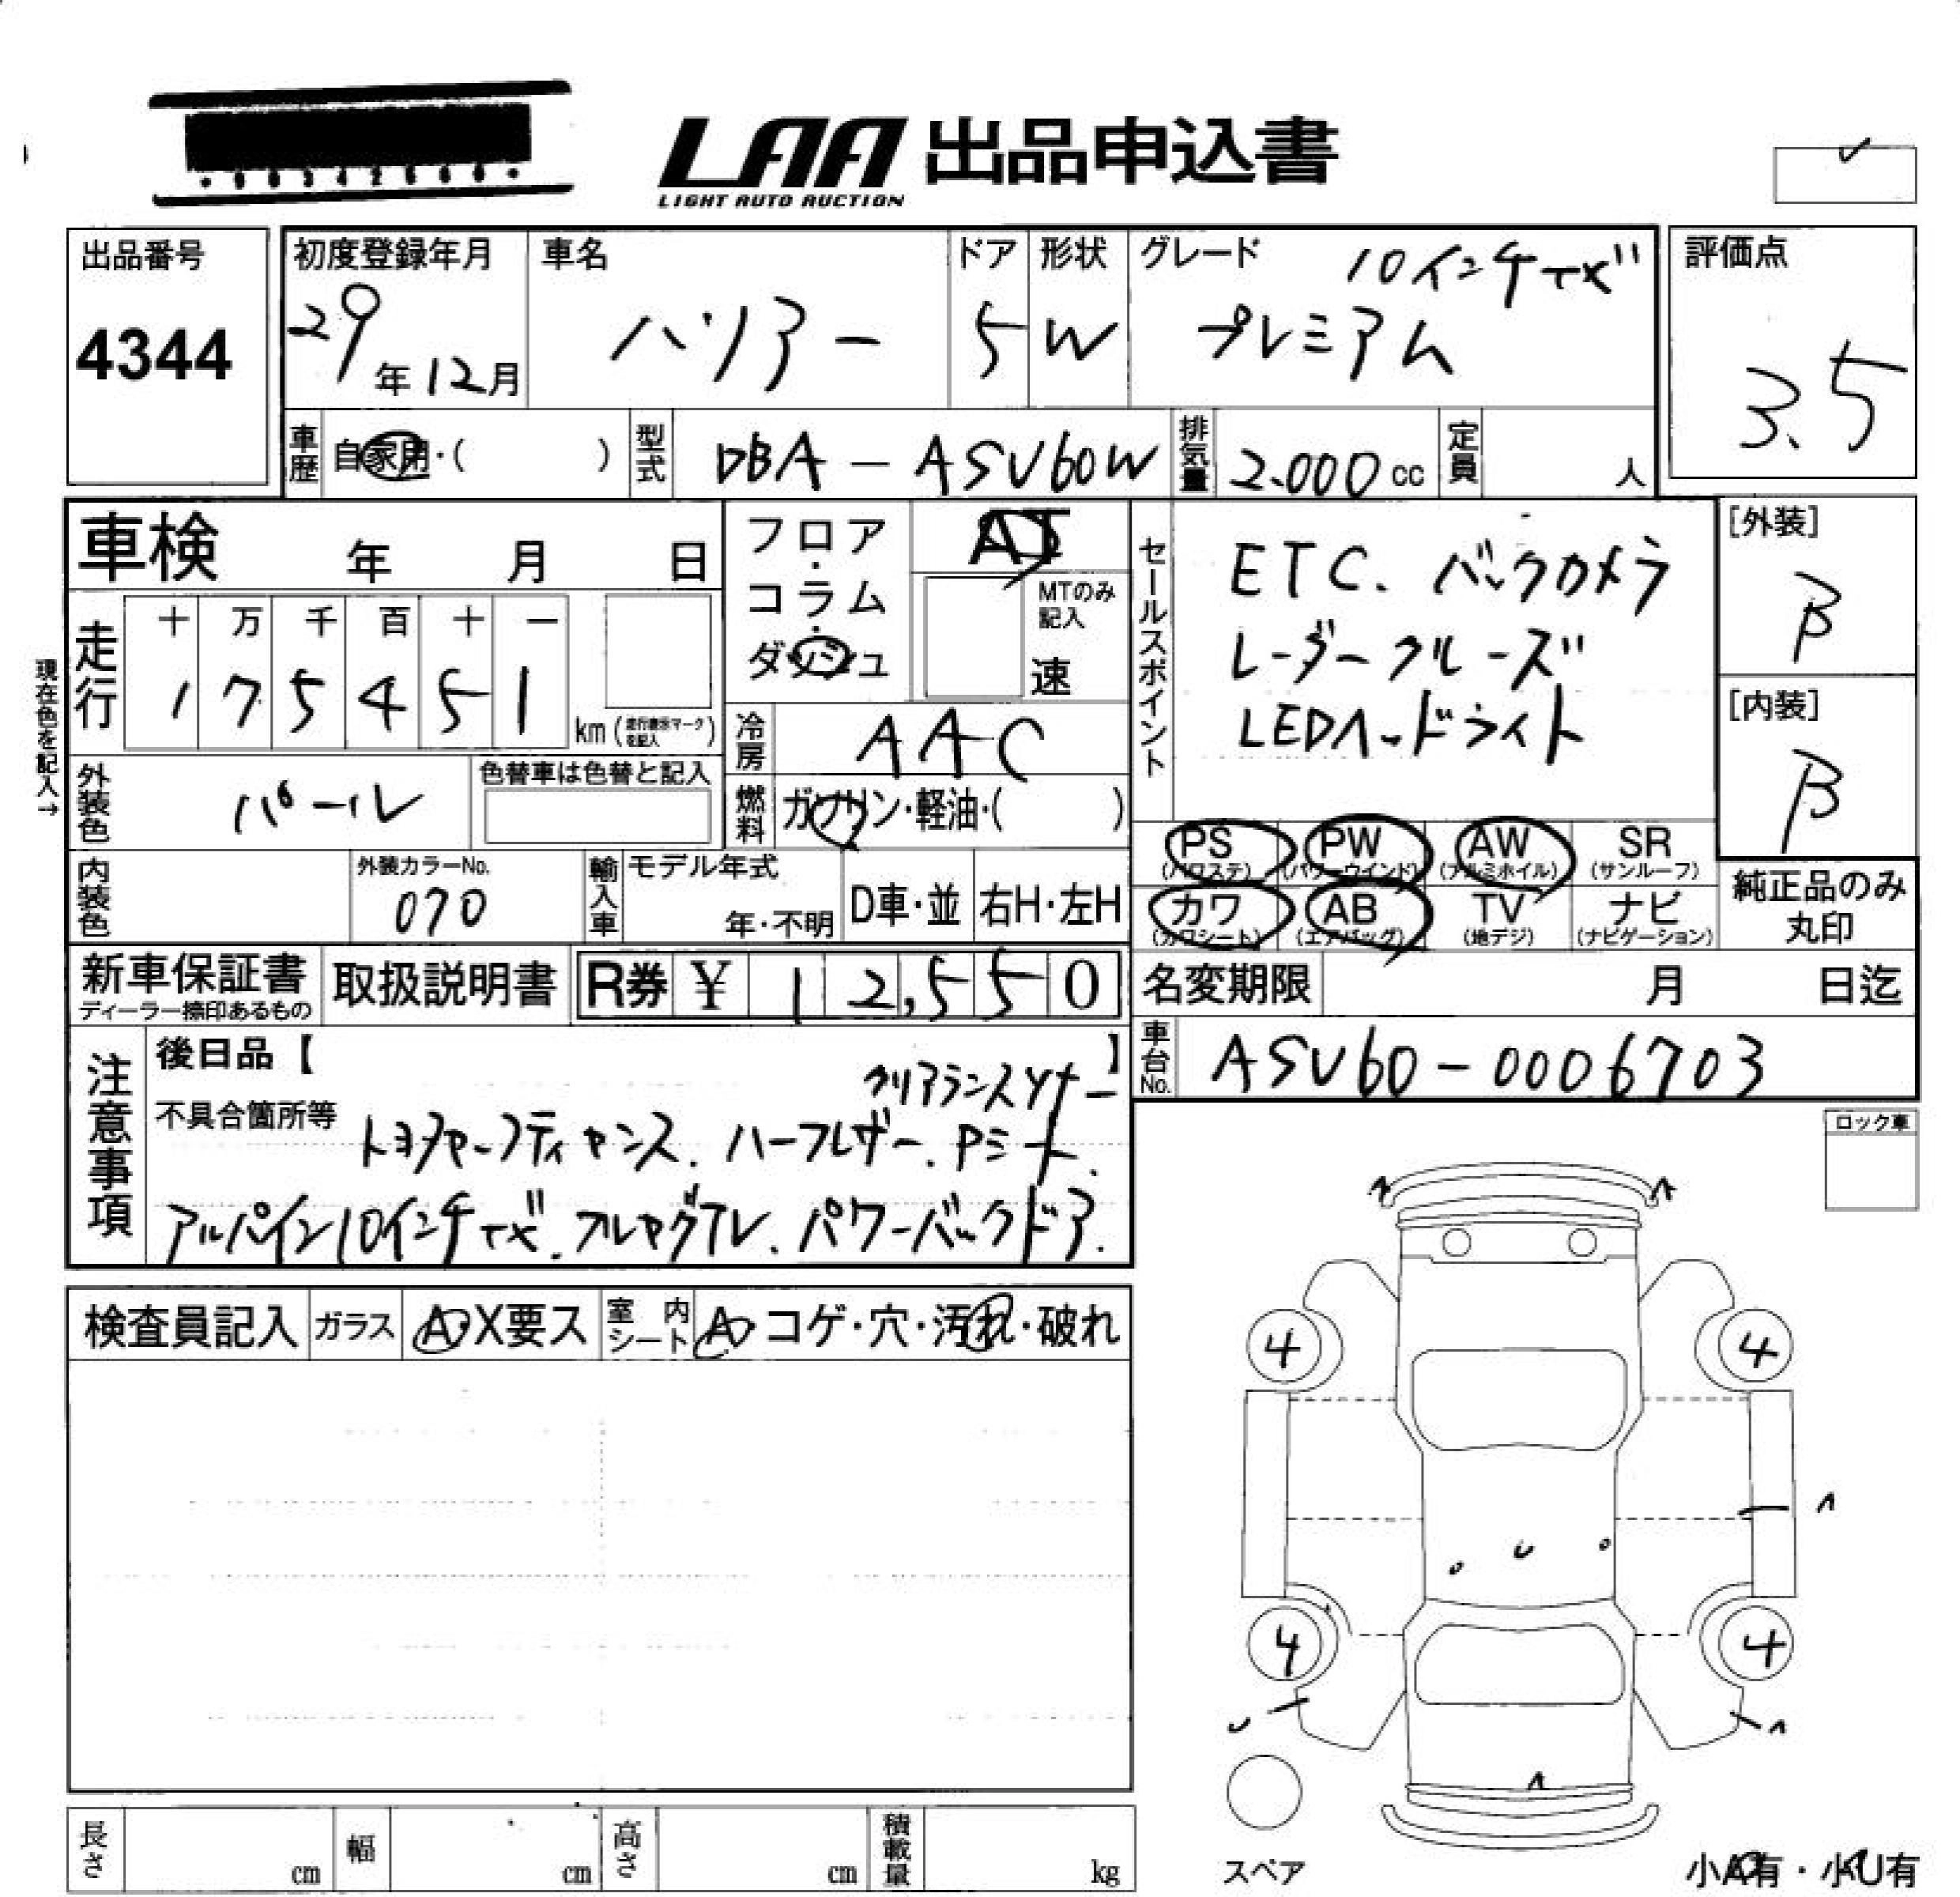 LAA 出品申込書
LIGHT AUTO AUCTION
出品番号
4344
初度登録年月
29年12月
車名
ハリアー
ドア
5
形状
W
グレード
10インチナビ
プレミアム
評価点
3.5
車歴 自家用・( )
型式 DBA-ASU60W
排気量 2.000cc
定員 人
車検 年 月 日
フロア・コラム・ダッシュ
AT
MTのみ記入
速
セールスポイント
ETC. バックカメラ
レーダークルーズ
LEDヘッドライト
[外装]
B
[内装]
B
現在色を記入→
走行
十 万 千 百 十 一
1 7 5 4 5 1
km (走行表示マークを記入)
冷房 AAC
外装色 パール
色替車は色替と記入
燃料 ガソリン・軽油・( )
PS (パワステ)
PW (パワーウインド)
AW (アルミホイル)
SR (サンルーフ)
カワ (カワシート)
AB (エアバッグ)
TV (地デジ)
ナビ (ナビゲーション)
純正品のみ丸印
内装色
外装カラーNo.
070
輸入車
モデル年式
年・不明
D車・並
右H・左H
新車保証書
ディーラー捺印あるもの
取扱説明書
R券 ¥ 12,550
名変期限 月 日迄
車台No. ASU60-0006703
注意事項
後日品【 】
不具合箇所等
クリアランスソナー
トヨタセーフティセンス. ハーフレザー. Pシート.
アルパイン10インチナビ. フルセグTV. パワーバックドア.
ロック車
検査員記入
ガラス A・X要ス
室内シート A・コゲ・穴・汚れ・破れ
4
4
4
4
スペア
小A有・小U有
長さ cm
幅 cm
高さ cm
積載量 kg